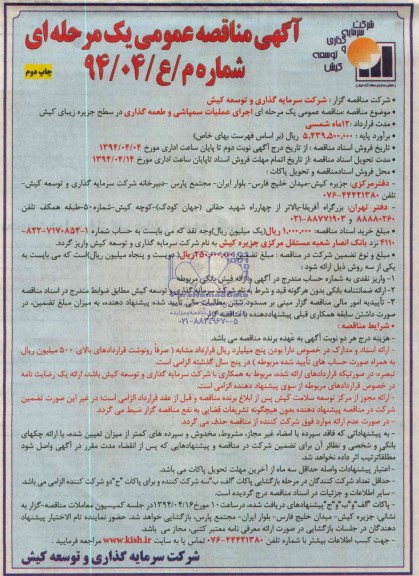 شرکت
سرمایه
گذاری
و
توسعه
کیش
آگهی مناقصه عمومی یک مرحله ای
شماره م/ع/۹۴/۰۴
چاپ دوم
• شرکت مناقصه گزار : شرکت سرمایه گذاری و توسعه کیش
• موضوع مناقصه :مناقصه عمومی یک مرحله ای اجرای عملیات سمپاشی و طعمه گذاری در سطح جزیره زیبای کیش
• مدت قرارداد :۱۲ماه شمسی
• برآورد پایه : ۵,۴۳۹,۵۰۰,۰۰۰ ریال (بر اساس فهرست بهای خاص)
• تاریخ فروش اسناد مناقصه : از تاریخ درج آگهی نوبت دوم تا پایان ساعت اداری مورخ ۱۳۹۴/۰۴/۰۴
• مدت تحویل اسناد مناقصه: از تاریخ اتمام مهلت فروش اسناد تاپایان ساعت اداری مورخ ۱۳۹۴/۰۴/۱۴
• محل فروش اسنادمناقصه و تحویل پاکات :
- دفترمرکزی: جزیره کیش-میدان خلیج فارس- بلوار ایران- مجتمع پارس -دبیرخانه شرکت سرمایه گذاری و توسعه کیش-
تلفن ۴۴۴۲۱۳۸۰-۰۷۶
- دفتر تهران: بزرگراه آفریقا-بالاتر از چهارراه شهید حقانی (جهان کودک)-کوچه کیش-شماره۵۰-طبقه همکف تلفن
۸۸۸۸۰۲۶۰ و ۸۸۷۷۱۹۰۳-۰۲۱
- مبلغ خرید اسناد مناقصه: ۱,۰۰۰,۰۰۰ ریال(یک میلیون ریال)وجه نقد که می بایست به حساب شماره ۱-۷۱۷۰۸۵۲-۸۲۲-
۴۱۱۰ نزد بانک انصار شعبه مستقل مرکزی جزیره کیش به نام شرکت سرمایه گذاری و توسعه کیش واریز گردد.
• مبلغ و نوع تضمین شرکت در مناقصه : مبلغ تضمین ریال(دویست و پنجاه میلیون ریال)است که می بایست به
یکی از سه روش ذیل ارائه شود :
۱- واریز نقدی به شماره حساب مندرج در آگهی و ارائه فیش بانکی مربوطه
۲- ارائه ضمانتنامه بانکی بدون هرگونه قید و شرط به نام شرکت سرمایه گذاری و توسعه کیش مطابق ضوابط مندرج در اسناد مناقصه
۳- تأییدیه امور مالی مناقصه گزار مبنی بر مسدود شدن مطالبات مالی تأیید شده پیشنهاد دهنده، به میزان مبلغ تضمین، در
صورت داشتن سابقه همکاری قبلی پیشنهاددهنده با مناقصه گزار
۰۲۱-۸۸۳۴۹۶۷۰-۵
• شرایط مناقصه :
- هزینه درج هر دو نوبت آگهی به عهده برنده مناقصه می باشد.
- ارائه اسناد و مدارک در خصوص دارا بودن پنج میلیارد ریال قرارداد مشابه ( صرفاً رونوشت قراردادهای بالای ۵۰۰ میلیون ریال
به همراه صورت حساب های تأیید شده مربوطه ) در پنج سال گذشته الزامی است.
تبصره: در صورتیکه قراردادهای ارائه شده، مربوط به همکاری با شرکت سرمایه گذاری و توسعه کیش باشد، ارائه یک رضایت نامه
در خصوص قراردادهای مربوطه از سوی پیشنهاد دهنده الزامی است.
- ارائه مجوز از مرکز توسعه سلامت کیش پس از ابلاغ برنده مناقصه و قبل از عقد قرارداد الزامی است؛ در غیر این صورت تضمین
شرکت در مناقصه پیشنهاد دهنده بدون هیچگونه تشریفات قضایی به نفع مناقصه گزار ضبط می گردد.
- در صورت عدم ارائه موارد فوق شرکت کننده از مناقصه حذف می گردد.
- به پیشنهاداتی که فاقد سپرده یا امضاء، غیر مجاز، مشروط، مخدوش و سپرده های کمتر از میزان تعیین شده، یا ارائه چکهای
بانکی و شخصی و نظائر آن برای تضمین شرکت در مناقصه و پیشنهادهایی که پس از انقضاء مدت مقرر در آگهی واصل شود
مطلقاً ترتیب اثر داده نخواهد شد.
- اعتبار پیشنهادات واصله حداقل سه ماه از آخرین مهلت تحویل پاکات می باشد.
- حداقل تعداد شرکت کنندگان در مرحله بازگشایی پاکات "الف-ب"سه شرکت کننده و برای پاکات "ج"دو شرکت کننده الزامی می باشد.
- سایر اطلاعات و جزئیات در اسناد مناقصه درج گردیده است.
- پاکات "الف"و"ب"و"ج"پیشنهادهای دریافت شده، درساعت ۱۰ مورخ۱۳۹۴/۰۴/۱۶در جلسه کمیسیون معاملات مناقصه-گزار به
نشانی: جزیره کیش- میدان خلیج فارس- بلوار ایران- مجتمع پارس، بازگشایی خواهد شد. حضور نماینده تام الاختیار پیشنهاد
دهندگان در جلسات بازگشایی در صورت ارائه معرفی نامه معتبر کتبی، مجاز می باشد.
- جهت کسب اطلاعات بیشتر با شماره تلفن ۴۴۴۲۱۳۸۰-۰۷۶ تماس یا به سایت www.kish.ir مراجعه فرمایید
شرکت سرمایه گذاری و توسعه کیش